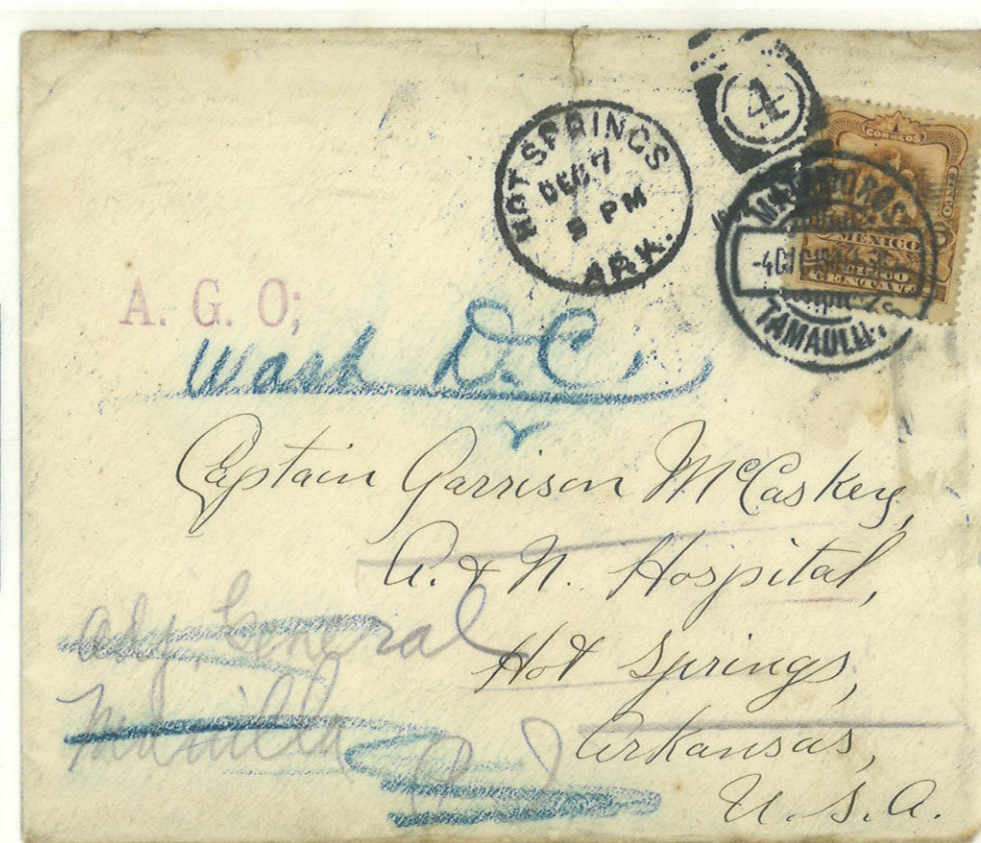 HOT SPRINGS
DEC 7
PM
ARK.
4
CORREOS
MEXICO
MATAMOROS
TAMAULI
A. G. O;
Wash D.C.
Captain Garrison McCaskey,
A. & N. Hospital,
Hot Springs,
Arkansas,
U. S. A.
Adj. General
Manilla
P. I.